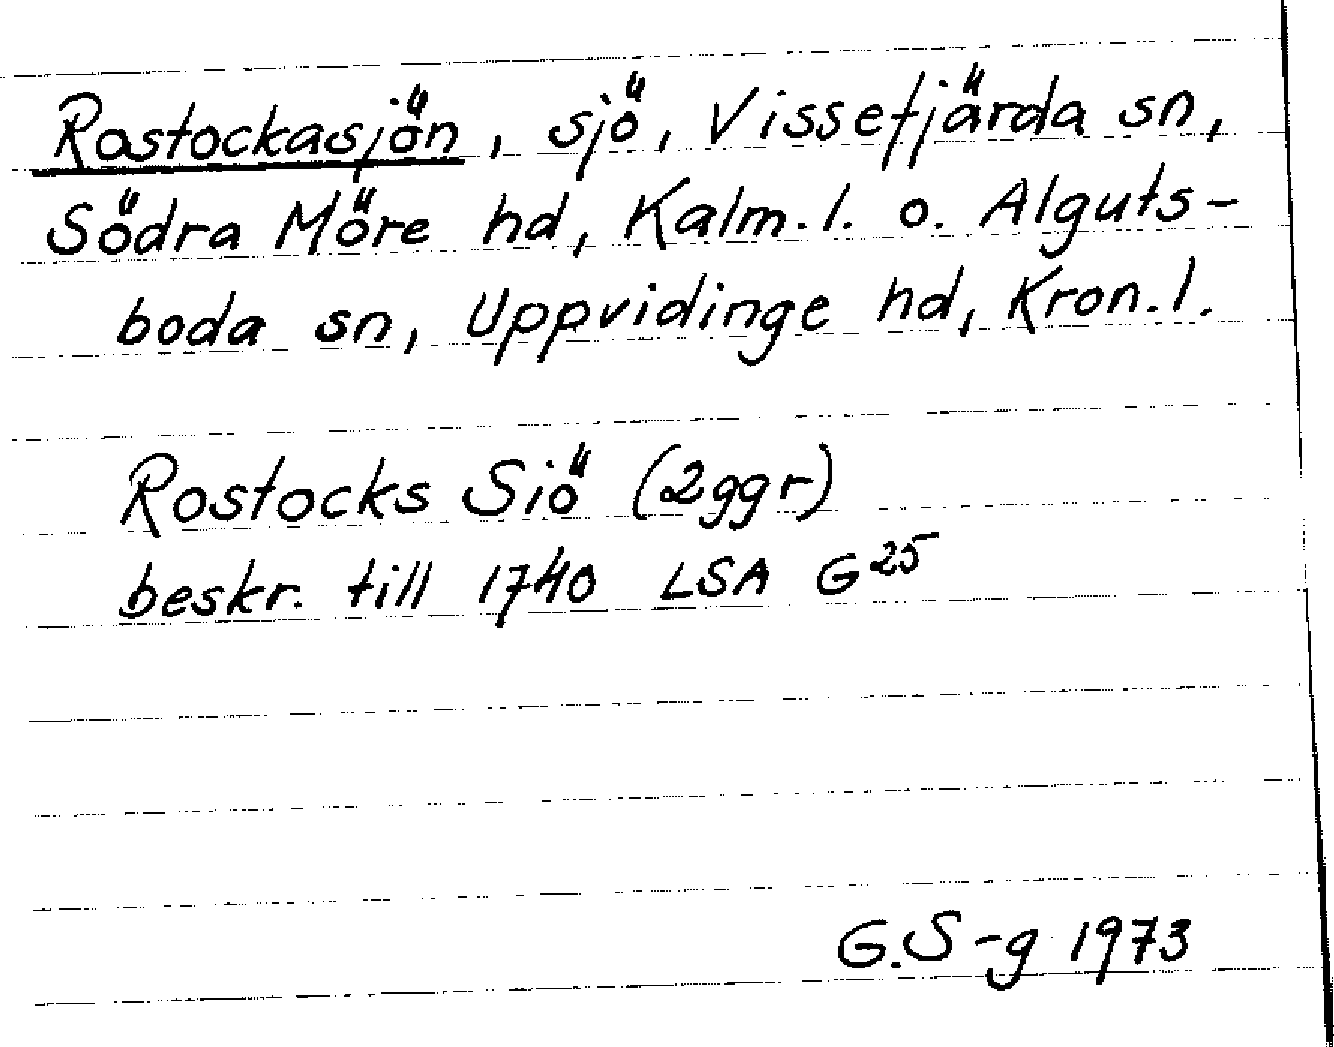 Rostockasjön, sjö, Vissefjärda sn,
Södra Möre hd, Kalm.l. o. Alguts-
boda sn, Uppvidinge hd, Kron.l.
Rostocks Siö (2ggr)
beskr. till 1740 LSA G25
G.S-g 1973